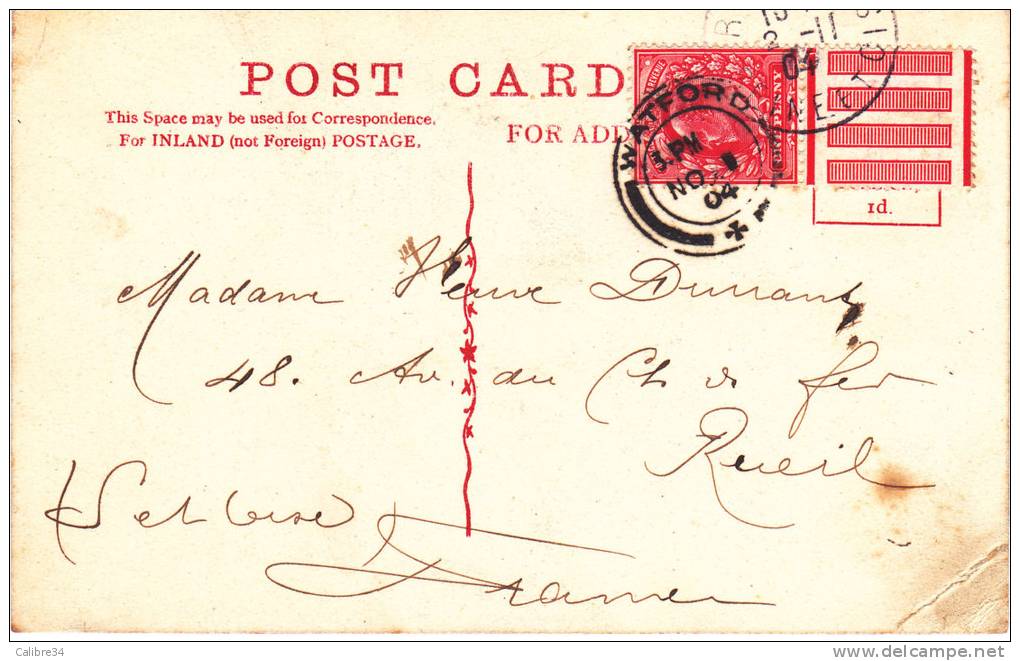 POST CARD
This Space may be used for Correspondence.
For INLAND (not Foreign) POSTAGE.
FOR ADD
WATFORD
3.PM
NO
04
PENNY
1d.
Madame Veuve Durrant
48. Av. du Ch de fer
Rueil
Set Oise
France
Calibre34
www.delcampe.net